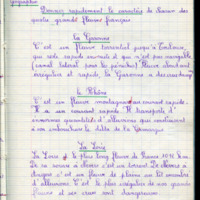 Géographie
Donner rapidement le caractère de chacun des
quatre grands fleuves français
La Garonne
C'est un fleuve torrentiel jusqu'à Toulouse,
qui reste rapide ensuite et qui n'est pas navigable
(canal latéral pour la péniche). Fleuve abondant
irrégulier et rapide, la Garonne a
le Rhône
C'est un fleuve montagneux au courant rapide.
à son courant rapide il transporte d'
énormes quantités d'alluvions qui
son embouchure le delta de la Camargue
La Loire
La Loire le plus long fleuve de France 1012 km
De sa source à c'est un torrent. De
c'est un fleuve de plaine au lit encombré
d'alluvions. C'est le plus irrégulier de nos grands
fleuves et ses crues sont dangereuses